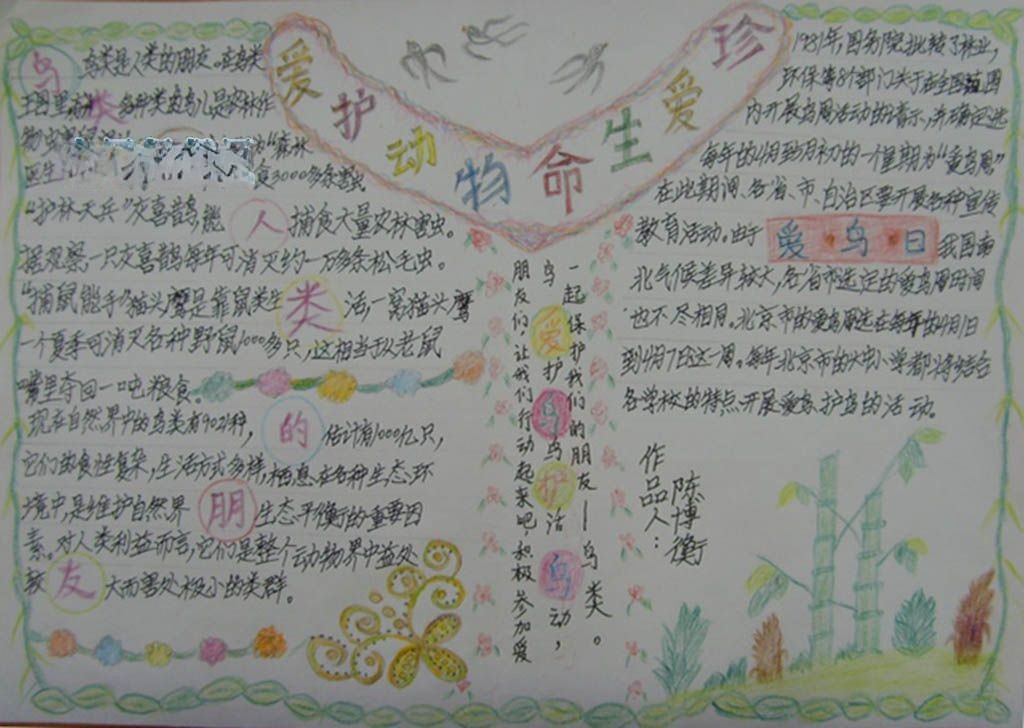 爱护动物命生爱珍
鸟类是人类的朋友。在鸟类
王国里
多种类的鸟儿是农林作
物
"森林
医生
食3000多条害虫。
"护林天兵"灰喜鹊,能 人 捕食大量农林害虫。
据观察一只灰喜鹊每年可消灭约一万多条松毛虫。
"捕鼠能手"猫头鹰是靠鼠类生 类 活,一窝猫头鹰
一个夏季可消灭各种野鼠1000多只,这相当于从老鼠
嘴里夺回一吨粮食。
现在自然界中的鸟类有9021种, 的 估计有1000亿只,
它们的食性复杂,生活方式多样,栖息在各种生态环
境中,是维护自然界 朋 生态平衡的重要因
素。对人类利益而言,它们是整个动物界中益处
较 友 大而害处极小的类群。
朋友们,让我们行动起来吧,积极参加爱
鸟 爱护鸟鸟护活鸟动,
一起保护我们的朋友—鸟类。
1981年,国务院批转了林业,
环保等8个部门关于在全国范围
内开展鸟周活动的请示,并确定选
每年的4月到5月初的一个星期为"爱鸟周"
在此期间、各省、市、自治区要开展各种宣传
教育活动。由于 爱鸟日 我国南
北气候差异较大,各省市选定的爱鸟周时间
也不尽相同。北京市的爱鸟周选在每年的4月1日
到4月7日这一周。每年北京市的大中小学都将结合
各学校的特点开展爱鸟、护鸟的活动。
作品人:
陈博衡